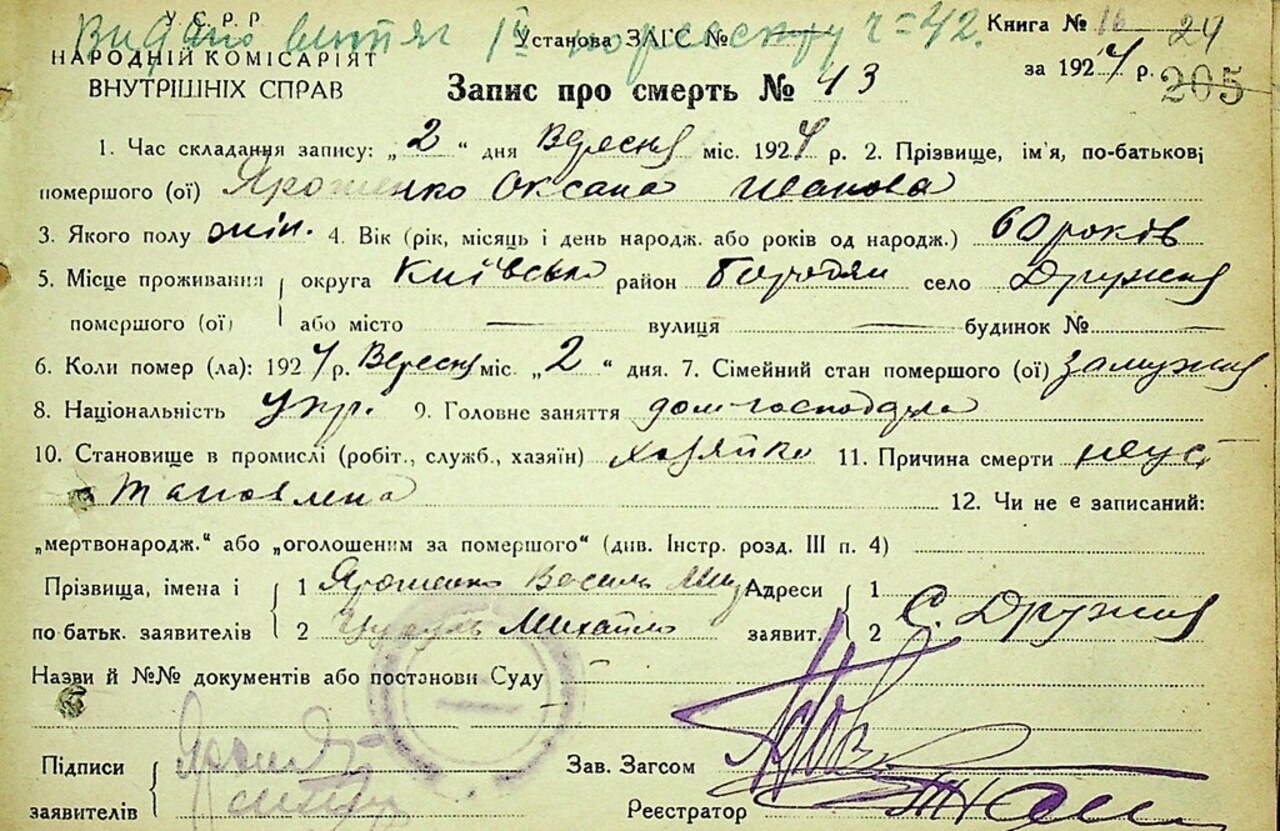 У.С.Р.Р.
Видано витяг
Книга № 16 24
Установа ЗАГС №
НАРОДНІЙ КОМІСАРІЯТ
ВНУТРІШНІХ СПРАВ
за 1924 р. 205
Запис про смерть № 43
1. Час складання запису: „2“ дня Вересня міс. 1924 р. 2. Прізвище, ім'я, по-батькові
помершого (ої) Ярошенко Оксана Иванова
3. Якого полу жін. 4. Вік (рік, місяць і день народж. або років од народж.) 60 років
5. Місце проживання округа Київська район Бородян село Дружня
помершого (ої) або місто — вулиця — будинок № —
6. Коли помер (ла): 1924 р. Вересня міс. „2“ дня. 7. Сімейний стан помершого (ої) замужня
8. Національність Укр. 9. Головне заняття
10. Становище в промислі (робіт., служб., хазяїн) хозяйка 11. Причина смерти неус
тановлена 12. Чи не є записаний:
„мертвонародж.“ або „оголошеним за помершого“ (див. Інстр. розд. III п. 4)
Прізвища, імена і 1 Ярошенко Василь Адреси 1
по батьк. заявителів 2 Михайло заявит. 2 С. Дружня
Назви й №№ документів або постанови Суду —
Підписи
Зав. Загсом
заявителів
Реєстратор